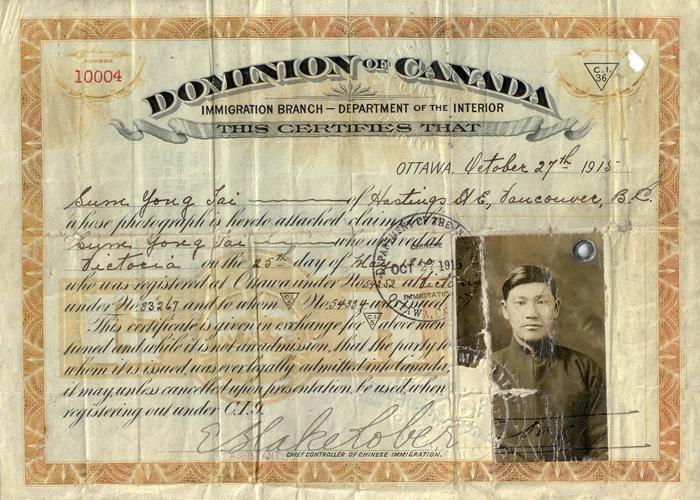 NUMBER
10004
C.I.
36
DOMINION OF CANADA
IMMIGRATION BRANCH — DEPARTMENT OF THE INTERIOR
THIS CERTIFIES THAT
OTTAWA, October 27th 1915
Sum Yong Tai of Hastings St E, Vancouver, B.C.
whose photograph is hereto attached claims
Sum Yong Tai who arrived at
Victoria on the 25th day of May
who was registered at Ottawa under No. 54252 at Victoria
under No. 33267 and to whom C.I. 5 No. 54334 was issued
This certificate is given in exchange for C.I. 5 above men
tioned and while it is not an admission, that the party to
whom it is issued, was ever legally admitted into Canada,
it may, unless cancelled upon presentation, be used when
registering out under C.I.9.
DEPARTMENT OF THE
OCT 27 1915
IMMIGRATION
E Blake Robertson
ASSISTANT CHIEF CONTROLLER OF CHINESE IMMIGRATION.